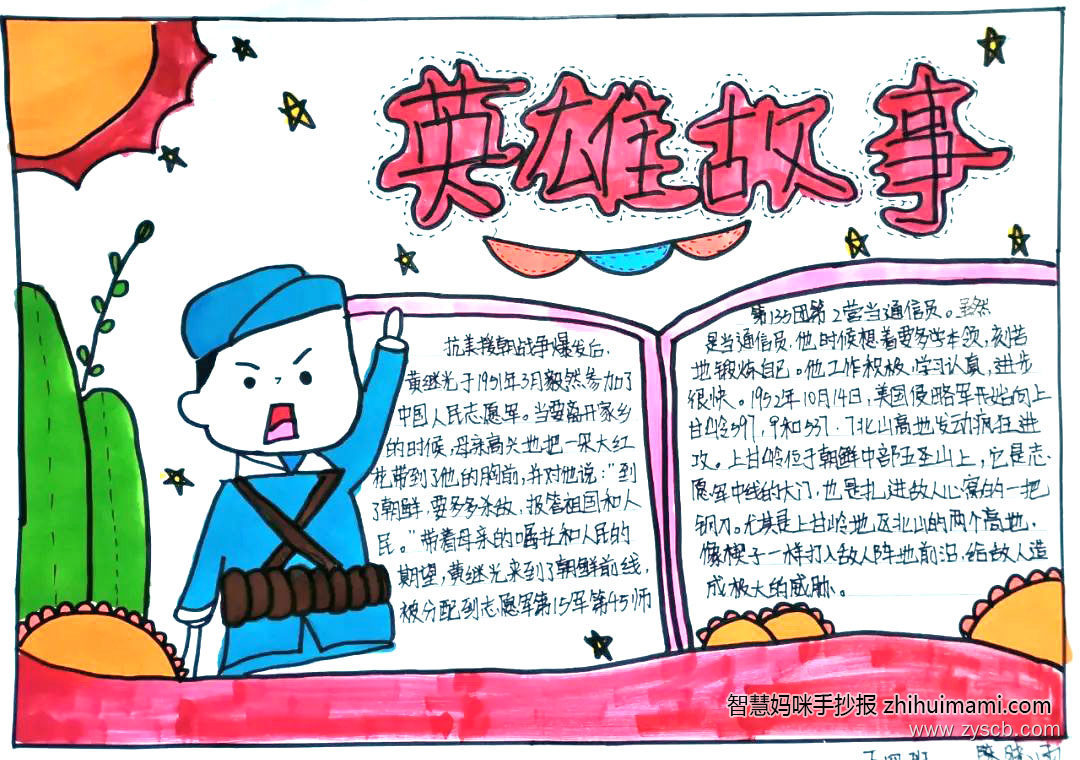 英雄故事
抗美援朝战争爆发后,
黄继光于1951年3月毅然参加了
中国人民志愿军。当要离开家乡
的时候,母亲高兴地把一朵大红
花带到了他的胸前,并对他说:"到
了朝鲜,要多多杀敌,报答祖国和人
民。"带着母亲的嘱托和人民的
期望,黄继光来到了朝鲜前线,
被分配到志愿军第15军第45师
第135团第2营当通信员。虽然
是当通信员,他时候想着要多学本领,刻苦
地锻炼自己。他工作积极,学习认真,进步
很快。1952年10月14日,美国侵略军开始向上
甘岭597,9和537·7北山高地发动疯狂进
攻。上甘岭位于朝鲜中部五圣山上,它是志
愿军中线的大门,也是扎进敌人心窝的一把
钢刀。尤其是上甘岭地区北山的两个高地,
像楔子一样打入敌人阵地前沿,给敌人造
成极大的威胁。
智慧妈咪手抄报 zhihuimami.com
www.zyscb.com